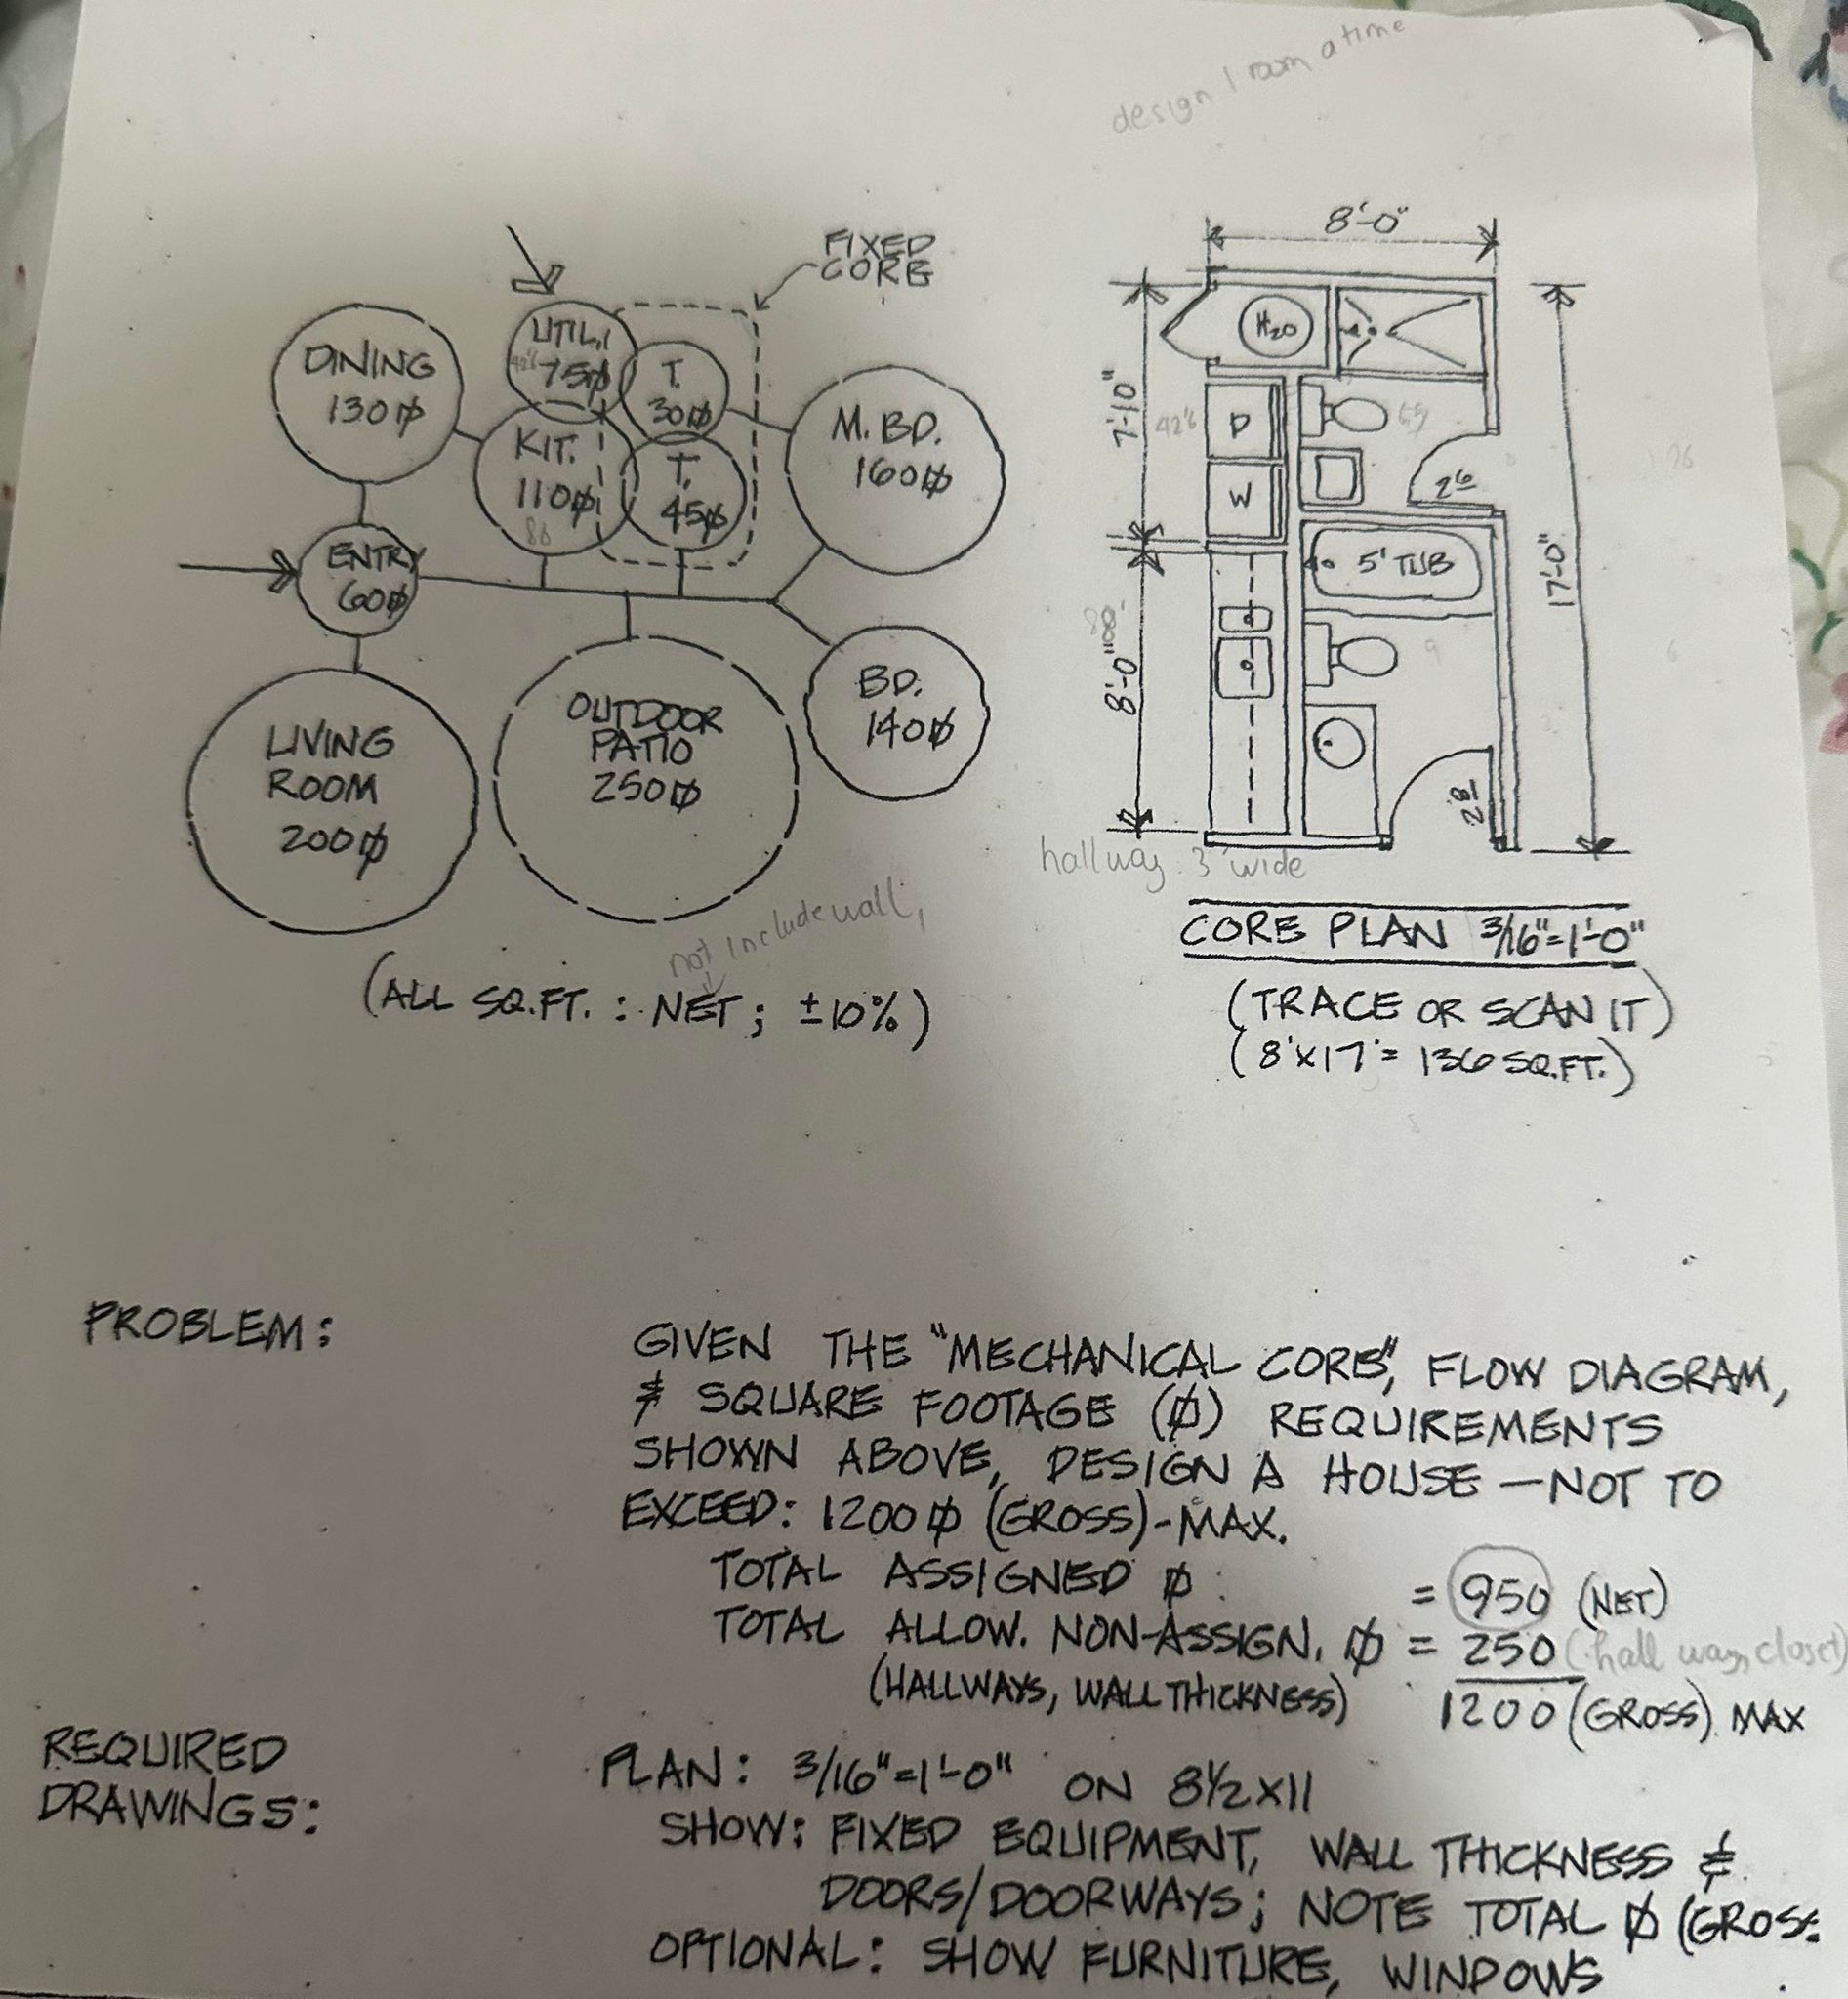 design 1 room a time
FIXED
CORE
UTIL.
75⌀
DINING
130⌀
T.
30⌀
M. BD.
160⌀
KIT.
110⌀
86
T.
45⌀
ENTRY
60⌀
LIVING
ROOM
200⌀
OUTDOOR
PATIO
250⌀
BD.
140⌀
not include wall,
(ALL SQ.FT. : NET ; ±10%)
8'-0"
H2O
7'-10"
D
W
2⁶
5' TUB
17'-0"
8'-0"
2⁸
hallway 3' wide
CORE PLAN 3/16"=1'-0"
(TRACE OR SCAN IT)
(8'X17'= 136 SQ.FT.)
PROBLEM:
GIVEN THE "MECHANICAL CORE", FLOW DIAGRAM,
& SQUARE FOOTAGE (⌀) REQUIREMENTS
SHOWN ABOVE, DESIGN A HOUSE —NOT TO
EXCEED: 1200 ⌀ (GROSS)-MAX.
TOTAL ASSIGNED ⌀ = 950 (NET)
TOTAL ALLOW. NON-ASSIGN. ⌀ = 250 (hall way, closet)
(HALLWAYS, WALL THICKNESS) 1200 (GROSS) MAX
REQUIRED
DRAWINGS:
PLAN: 3/16"=1'-0" ON 8½X11
SHOW: FIXED EQUIPMENT, WALL THICKNESS &
DOORS/DOORWAYS; NOTE TOTAL ⌀ (GROSS
OPTIONAL: SHOW FURNITURE, WINDOWS